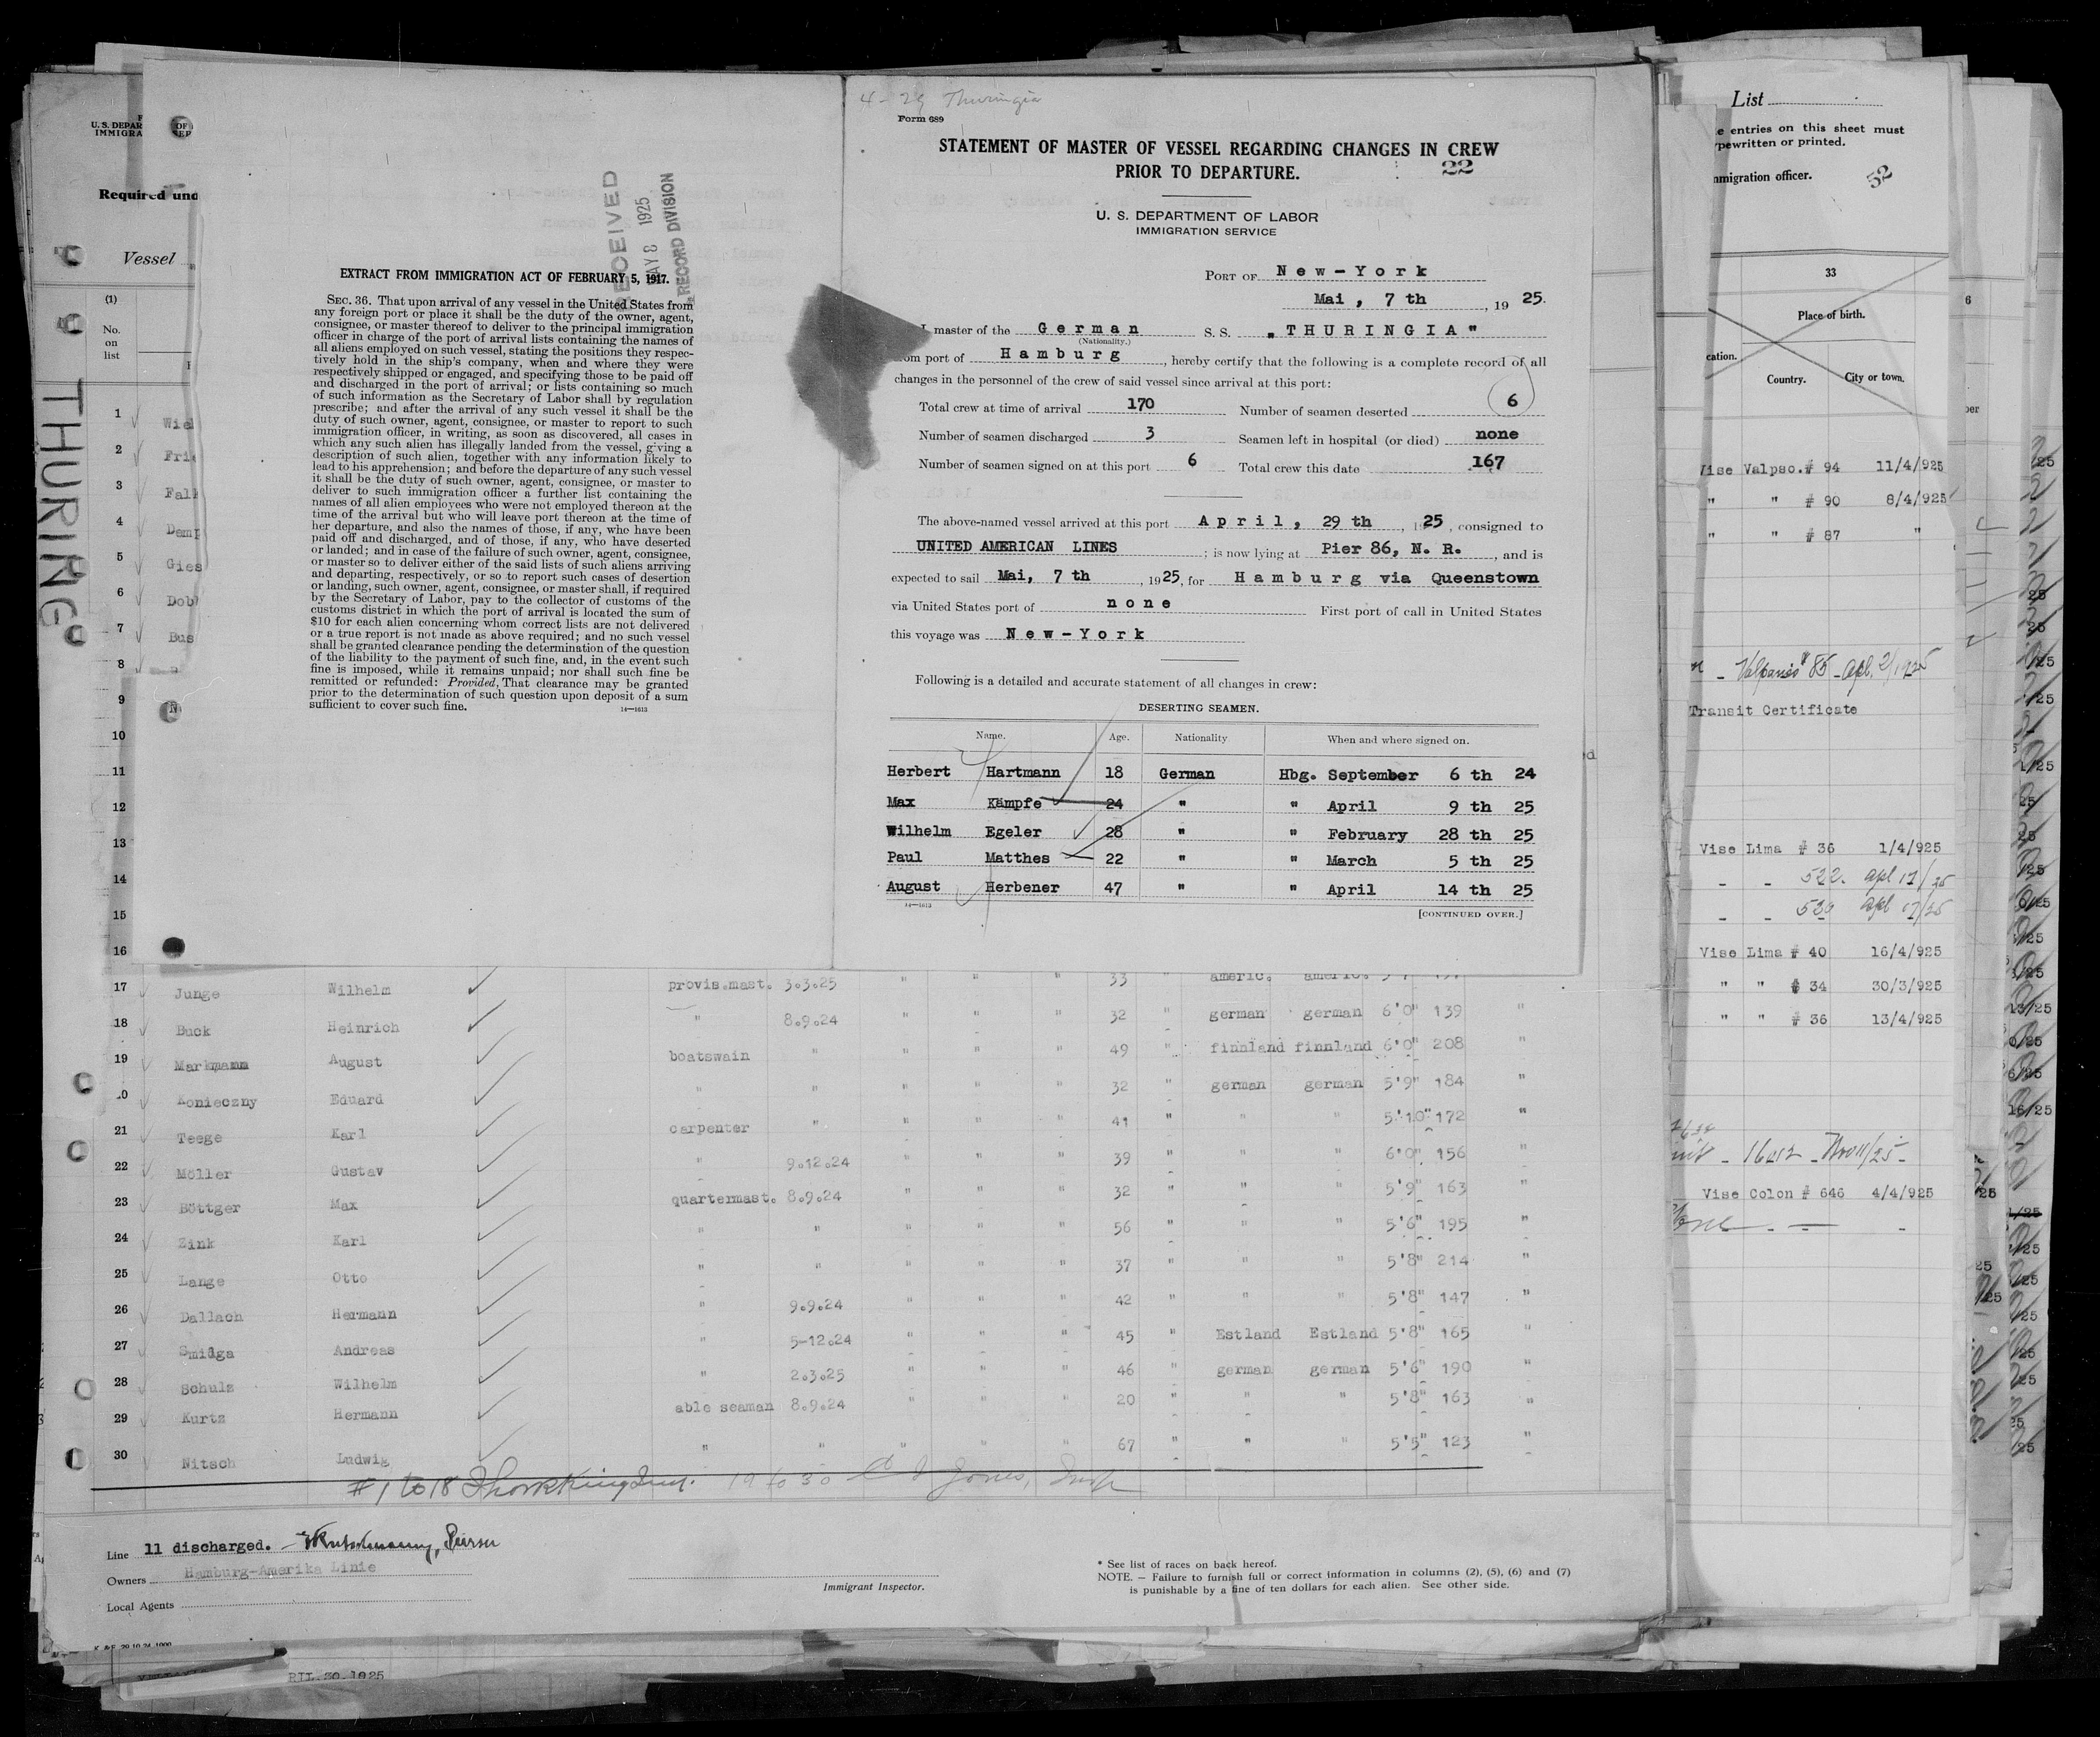 4-29 Thuringia
Form 689
STATEMENT OF MASTER OF VESSEL REGARDING CHANGES IN CREW
PRIOR TO DEPARTURE.
22
U. S. DEPARTMENT OF LABOR
IMMIGRATION SERVICE
PORT OF New-York
Mai, 7 th, 19 25.
I, master of the German S. S. „THURINGIA"
(Nationality.)
from port of Hamburg, hereby certify that the following is a complete record of all
changes in the personnel of the crew of said vessel since arrival at this port:
Total crew at time of arrival 170 Number of seamen deserted 6
Number of seamen discharged 3 Seamen left in hospital (or died) none
Number of seamen signed on at this port 6 Total crew this date 167
The above-named vessel arrived at this port April, 29 th, 1925, consigned to
UNITED AMERICAN LINES; is now lying at Pier 86, N. R., and is
expected to sail Mai, 7 th, 1925, for Hamburg via Queenstown
via United States port of none First port of call in United States
this voyage was New-York
Following is a detailed and accurate statement of all changes in crew:
DESERTING SEAMEN.
Name. Age. Nationality When and where signed on.
Herbert Hartmann 18 German Hbg. September 6 th 24
Max Kämpfe 24 " " April 9 th 25
Wilhelm Egeler 28 " " February 28 th 25
Paul Matthes 22 " " March 5 th 25
August Herbener 47 " " April 14 th 25
14—1613
[CONTINUED OVER.]
RECEIVED
MAY 8 1925
RECORD DIVISION
EXTRACT FROM IMMIGRATION ACT OF FEBRUARY 5, 1917.
SEC. 36. That upon arrival of any vessel in the United States from
any foreign port or place it shall be the duty of the owner, agent,
consignee, or master thereof to deliver to the principal immigration
officer in charge of the port of arrival lists containing the names of
all aliens employed on such vessel, stating the positions they respec-
tively hold in the ship's company, when and where they were
respectively shipped or engaged, and specifying those to be paid off
and discharged in the port of arrival; or lists containing so much
of such information as the Secretary of Labor shall by regulation
prescribe; and after the arrival of any such vessel it shall be the
duty of such owner, agent, consignee, or master to report to such
immigration officer, in writing, as soon as discovered, all cases in
which any such alien has illegally landed from the vessel, giving a
description of such alien, together with any information likely to
lead to his apprehension; and before the departure of any such vessel
it shall be the duty of such owner, agent, consignee, or master to
deliver to such immigration officer a further list containing the
names of all alien employees who were not employed thereon at the
time of the arrival but who will leave port thereon at the time of
her departure, and also the names of those, if any, who have been
paid off and discharged, and of those, if any, who have deserted
or landed; and in case of the failure of such owner, agent, consignee,
or master so to deliver either of the said lists of such aliens arriving
and departing, respectively, or so to report such cases of desertion
or landing, such owner, agent, consignee, or master shall, if required
by the Secretary of Labor, pay to the collector of customs of the
customs district in which the port of arrival is located the sum of
$10 for each alien concerning whom correct lists are not delivered
or a true report is not made as above required; and no such vessel
shall be granted clearance pending the determination of the question
of the liability to the payment of such fine, and, in the event such
fine is imposed, while it remains unpaid; nor shall such fine be
remitted or refunded: Provided, That clearance may be granted
prior to the determination of such question upon deposit of a sum
sufficient to cover such fine.
14—1613
U. S. DEPAR
IMMIGRA
Required und
Vessel
THURING
(1)
No.
on
list
1 Wiel
2 Frie
3 Fall
4 Demp
5 Gies
6 Dob
7 Bus
8
9
10
11
12
13
14
15
16
33 " americ. americ.
17 Junge Wilhelm provis.mast. 3.3.25 " " "
18 Buck Heinrich " 8.9.24 " " " 32 " german german 6'0" 139 "
19 Markmann August boatswain " " " " 49 " finnland finnland 6'0" 208 "
20 Konieczny Eduard " " " " " 32 " german german 5'9" 184 "
21 Teege Karl carpenter " " " " 41 " " " 5'10" 172 "
22 Möller Gustav " 9.12.24 " " " 39 " " " 6'0" 156 "
23 Böttger Max quartermast. 8.9.24 " " " 32 " " " 5'9" 163 "
24 Zink Karl " " " " " 56 " " " 5'6" 195 "
25 Lange Otto " " " " " 37 " " " 5'8" 214 "
26 Dallach Hermann " 9.9.24 " " " 42 " " " 5'8" 147 "
27 Smidga Andreas " 5-12.24 " " " 45 " Estland Estland 5'8" 165 "
28 Schulz Wilhelm " 2.3.25 " " " 46 " german german 5'6" 190 "
29 Kurtz Hermann able seaman 8.9.24 " " " 20 " " " 5'8" 163 "
30 Nitsch Ludwig " " " " " 67 " " " 5'5" 123 "
#1 to 18 19 to 30 Jones, Insp
Line 11 discharged.
Owners Hamburg-Amerika Linie
Local Agents
Immigrant Inspector.
* See list of races on back hereof.
NOTE. — Failure to furnish full or correct information in columns (2), (5), (6) and (7)
is punishable by a fine of ten dollars for each alien. See other side.
RIL.30.1925
List
e entries on this sheet must
ypewritten or printed.
mmigration officer.
52
33
Place of birth.
cation. Country. City or town.
Vise Valpso.# 94 11/4/925
" " # 90 8/4/925
" " # 87 "
85 - apl. 2/1925
Transit Certificate
Vise Lima # 36 1/4/925
- - 522. apl 17/25
- - 520 apl 17/25
Vise Lima # 40 16/4/925
" " # 34 30/3/925
" " # 36 13/4/925
Vise Colon # 646 4/4/925